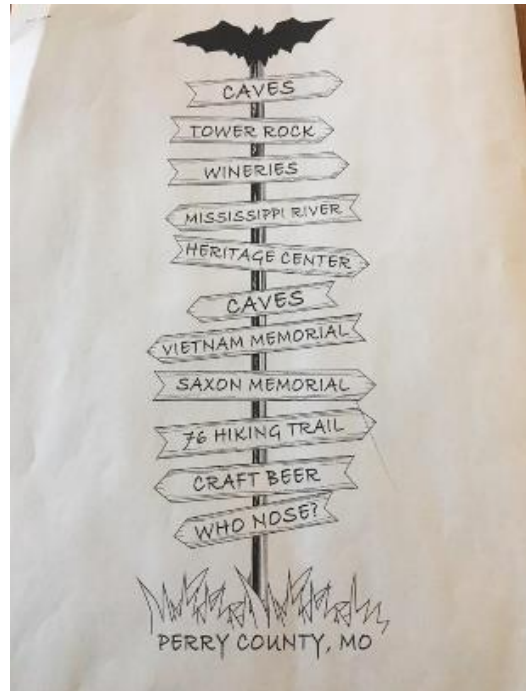 CAVES
TOWER ROCK
WINERIES
MISSISSIPPI RIVER
HERITAGE CENTER
CAVES
VIETNAM MEMORIAL
SAXON MEMORIAL
76 HIKING TRAIL
CRAFT BEER
WHO NOSE?
PERRY COUNTY, MO